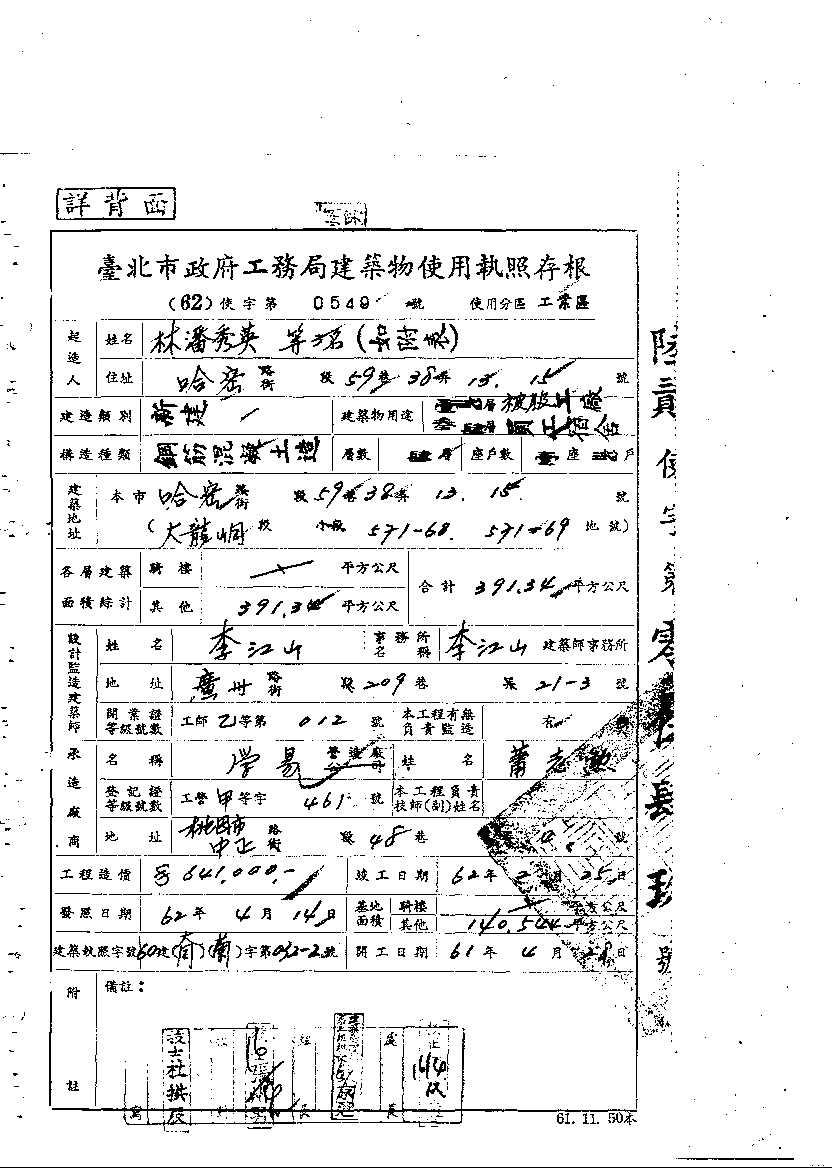 詳背面
臺北市政府工務局建築物使用執照存根
(62)使字第 0549 號 使用分區 工業區
起造人 姓名 林潘秀英 等
住址 哈密 路街 段 59巷 38弄 13. 15 號
建造類別 新建 建築物用途 被服工廠 員工宿舍
構造種類 鋼筋混凝土造 層數 座戶數 座 戶
建築地址 本市 哈密 路街 段 59巷 38弄 13. 15. 號
(大龍峒 段 小段 571-68. 571-69 地號)
各層建築面積綜計 騎樓 平方公尺 合計 391.34 平方公尺
其他 391.34 平方公尺
設計監造建築師 姓名 李江山 事務所名稱 李江山 建築師事務所
地址 廣州 路街 段 209 巷 弄 21-3 號
開業證等級號數 工師 乙等第 012 號 本工程有無負責監造 有
承造廠商 名稱 學易 營造廠 姓名 蕭志
登記證等級號數 工營 甲等字 461 號 本工程負責技師(副)姓名
地址 桃園市 中正 路街 段 48 巷 號
工程造價 641,000.- 竣工日期 62年 2月 25日
發照日期 62年 4月 14日 基地面積 騎樓 平方公尺
其他 140.544 平方公尺
建築執照字號 60建 字第 032-2號 開工日期 61年 4月 日
附註 備註：
技士杜拱辰
61. 11. 50本
使字第零
號